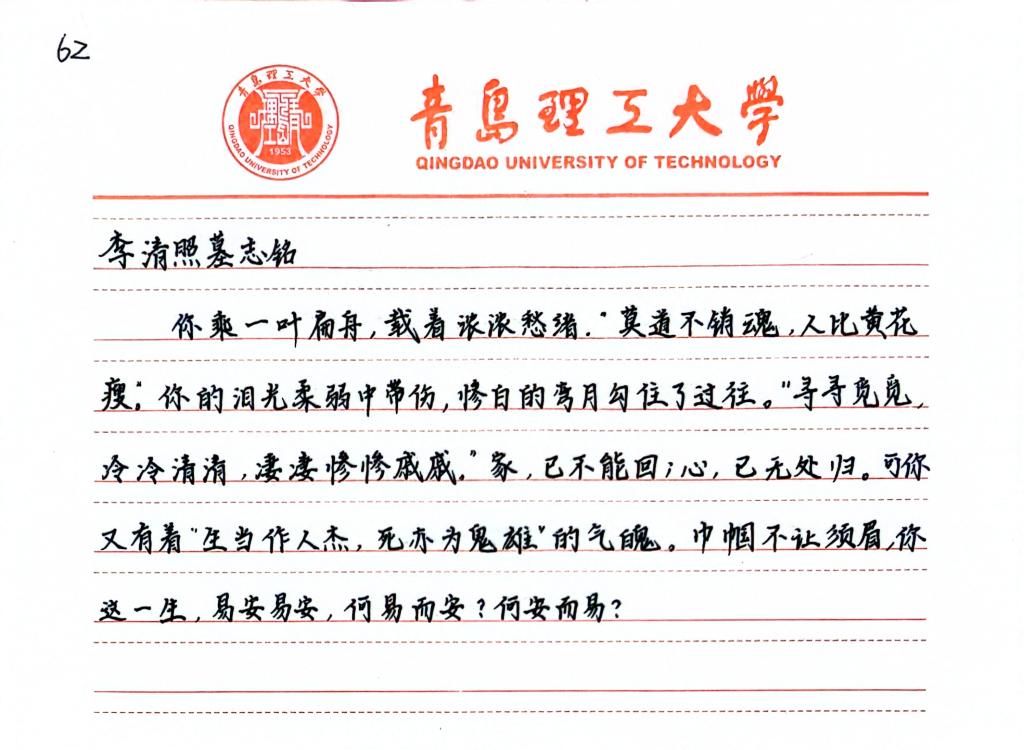 62
青岛理工大学
QINGDAO UNIVERSITY OF TECHNOLOGY
1953
青岛理工大學
QINGDAO UNIVERSITY OF TECHNOLOGY
李清照墓志铭
你乘一叶扁舟,载着浓浓愁绪.“莫道不销魂,人比黄花
瘦”.你的泪光柔弱中带伤,惨白的弯月勾住了过往。“寻寻觅觅,
冷冷清清,凄凄惨惨戚戚.”家,已不能回;心,已无处归。可你
又有着“生当作人杰,死亦为鬼雄”的气魄。巾帼不让须眉,你
这一生,易安易安,何易而安?何安而易?